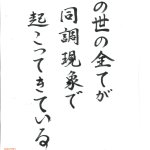 の世の全てが
同調現象で
起こってきている